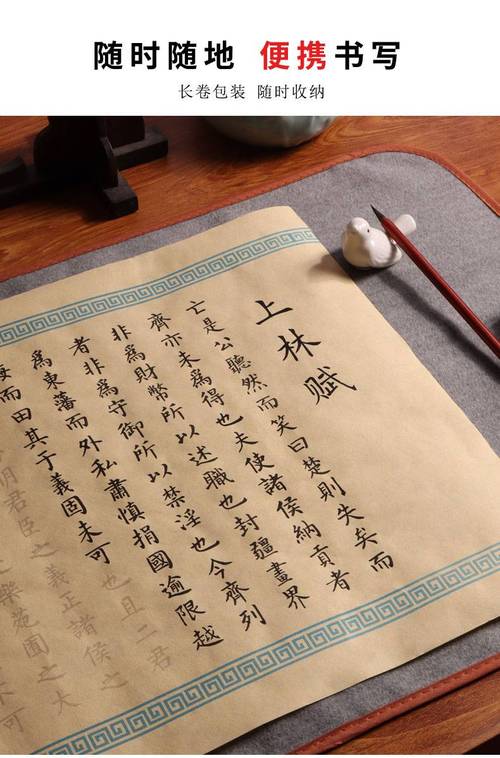 随时随地 便携书写
长卷包装 随时收纳
上林赋
亡是公聽然而笑曰楚則失矣而
齊亦未爲得也夫使諸侯納貢者
非爲財幣所以述職也封疆畫界
者非爲守御所以禁淫也今齊列
爲東藩而外私肅慎捐國逾限越
海而田其于義固未可也且二君
明君臣之義正諸侯之
之樂苑囿之大
可